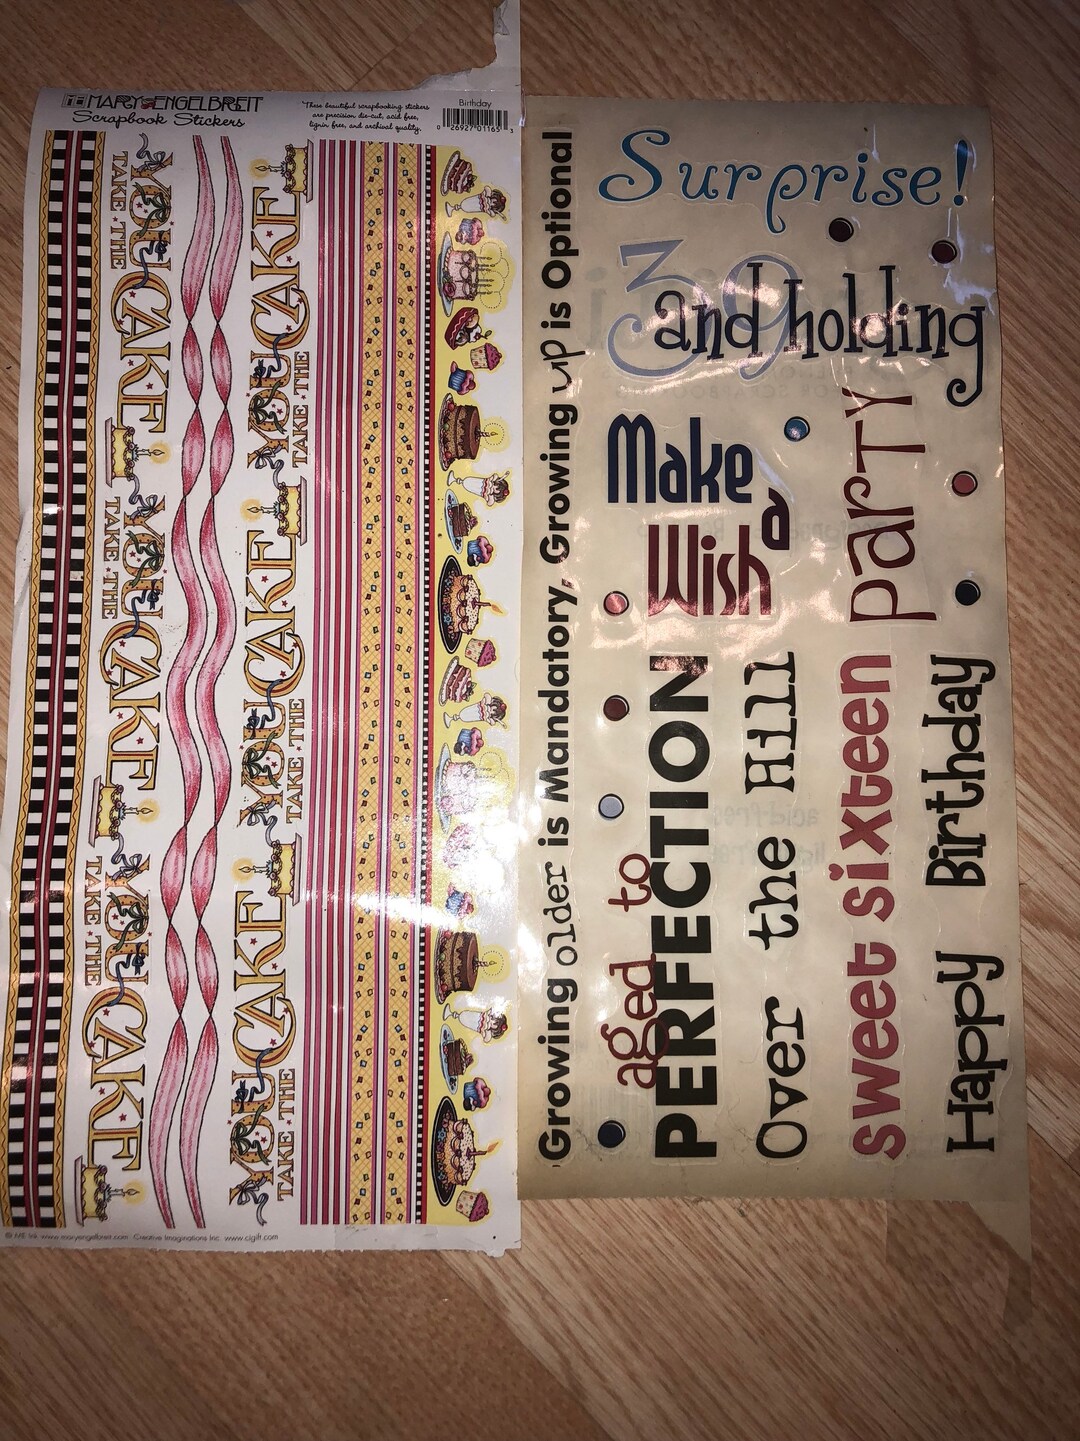 MARY ENGELBREIT
Scrapbook Stickers
These beautiful scrapbooking stickers
are precision die-cut, acid free,
lignin free, and archival quality.
Birthday
0 26927 01165 3
YOU TAKE THE CAKE
YOU TAKE THE CAKE
YOU TAKE THE CAKE
YOU TAKE THE CAKE
YOU TAKE THE CAKE
YOU TAKE THE CAKE
© ME Ink www.maryengelbreit.com Creative Imaginations Inc. www.cigift.com
Growing older is Mandatory, Growing up is Optional
Surprise!
39
and holding
Make
a
Wish
party
aged to
PERFECTION
Over the Hill
sweet sixteen
Happy Birthday